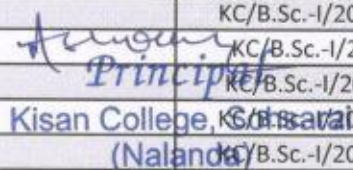 KC/B.Sc.-I/20
KC/B.Sc.-I/2
Principal KC/B.Sc.-I/20
Kisan College, Sohsarai KC/B.Sc.-I/20
(Nalanda) KC/B.Sc.-I/20